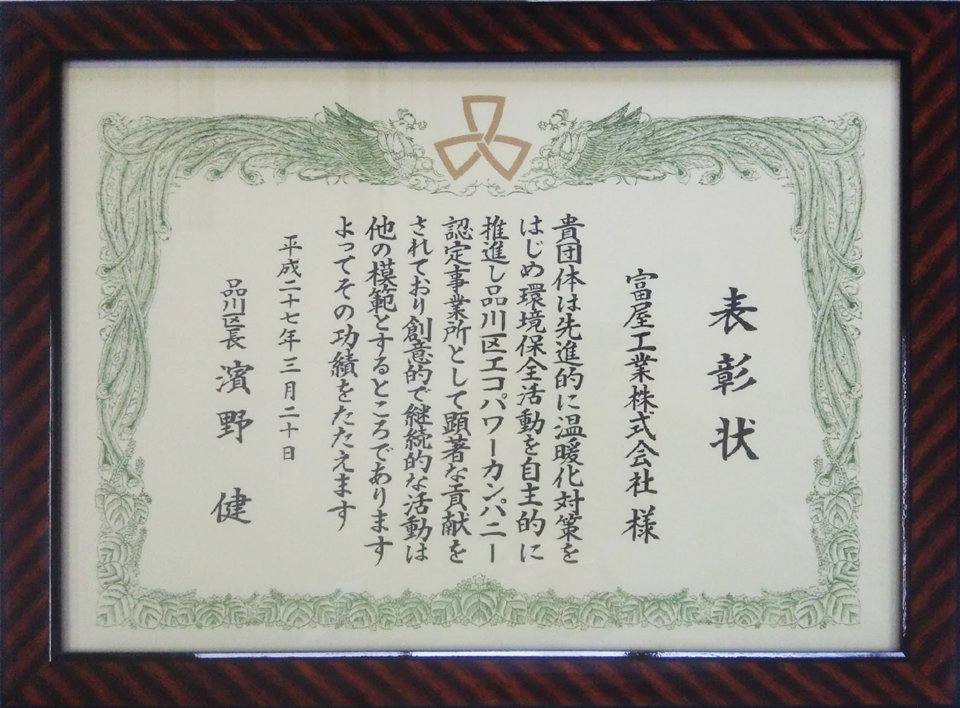 表彰状
富屋工業株式会社 様
貴団体は先進的に温暖化対策を
はじめ環境保全活動を自主的に
推進し品川区エコパワーカンパニー
認定事業所として顕著な貢献を
されており創意的で継続的な活動は
他の模範とするところであります
よってその功績をたたえます
平成二十七年三月二十日
品川区長 濱野 健